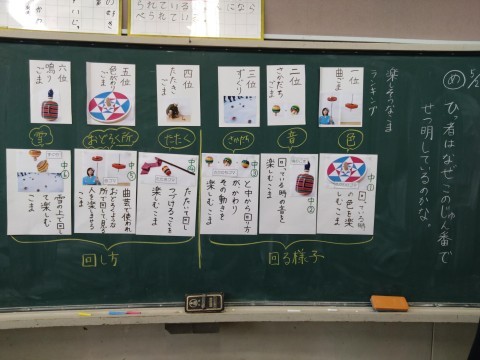 5/2
め
ひっ者はなぜこのじゅん番で
せつ明しているのかな。
楽しそうなこま
ランキング
一位
曲ごま
二位
さかだち
ごま
三位
ずぐり
四位
たたき
ごま
五位
色がわり
ごま
六位
鳴り
ごま
色
音
さかだち
たたく
おどろく所
雪
中①
回っている時
の色を楽
しむこま
中②
回っている時の音を
楽しむこま
中③
と中から回り方
がかわり
その動きを
楽しむこま
中④
たたいて回し
つづけることを
楽しむこま
中⑤
曲芸で使われ
おどろくような
所で回して見る
人を楽しませる
こま
中⑥
雪の上で回し
て楽しむ
こま
回る様子
回し方